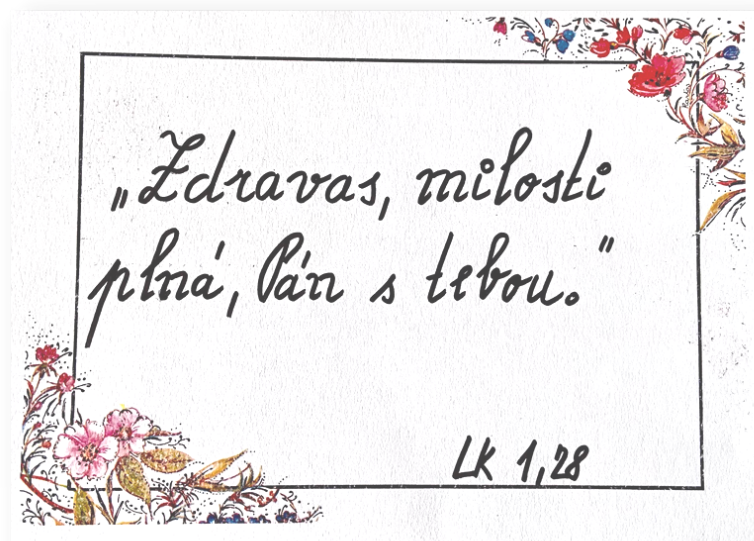 „Zdravas, milosti
plná, Pán s tebou.“
LK 1,28